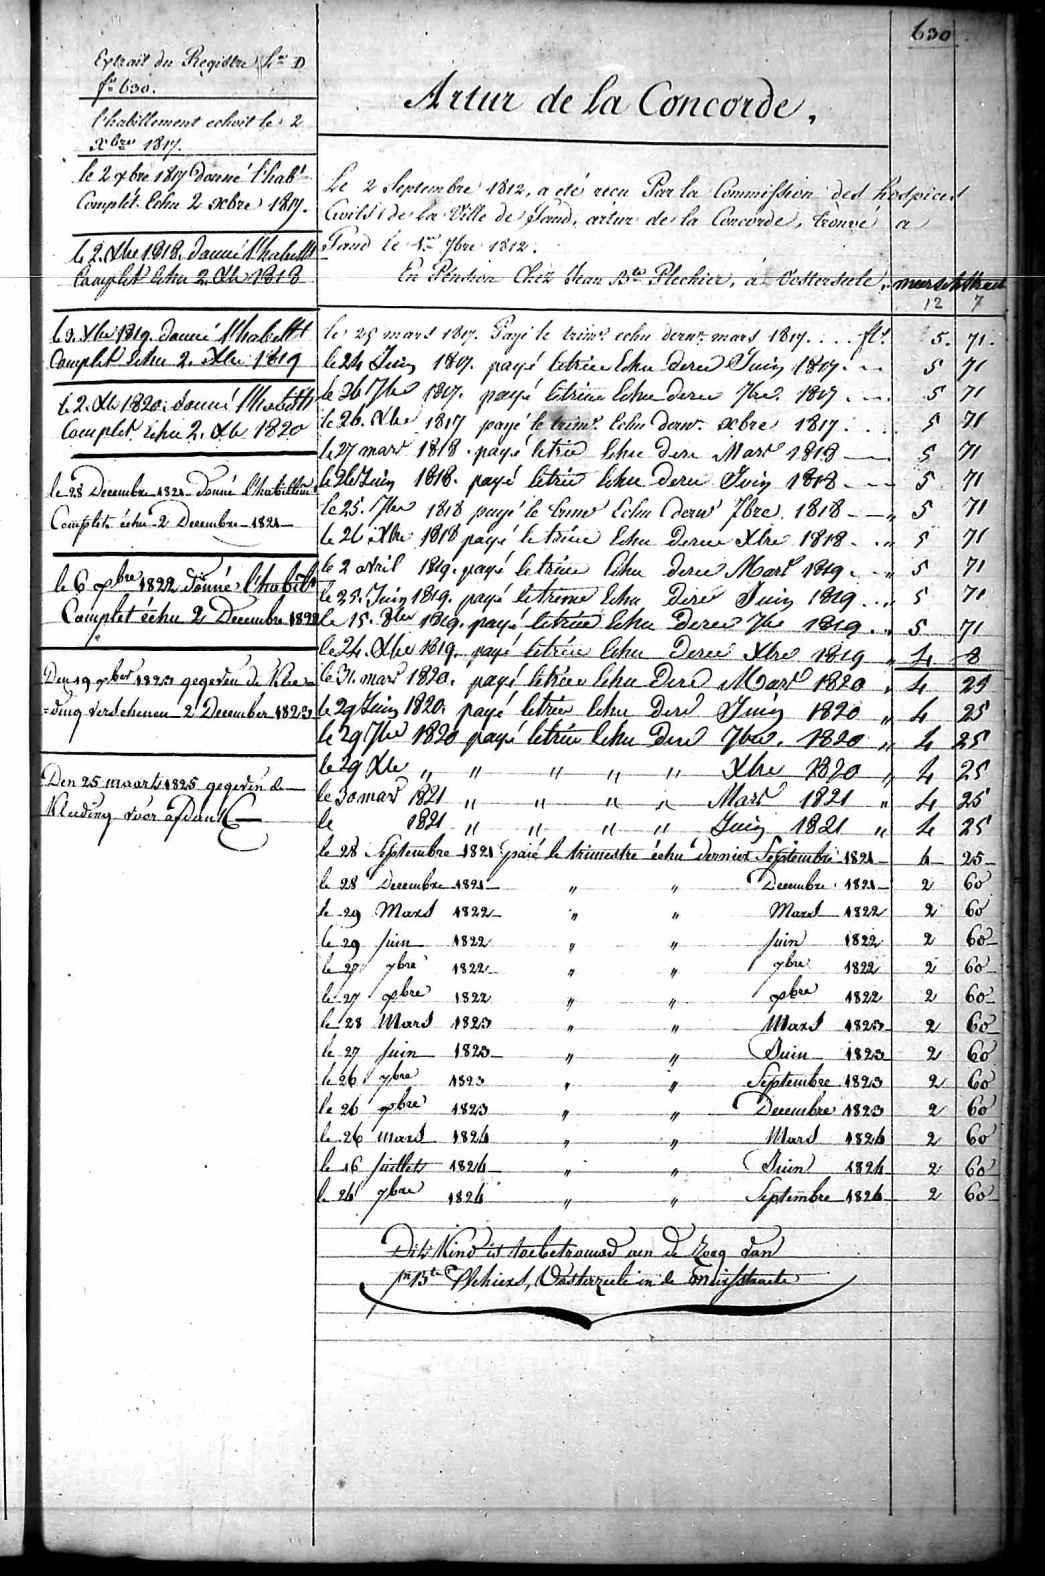 630
Extrait du Registre Lra D
fo 630.
l'habillement echoit le 2
Xbre 1817.
le 2 xbre 1817 donné l'habt
Complet. Echu 2 xbre 1817.
le 2. Xbre 1818. donné l'habillt
Complet Echu 2. Xbr 1818
le 3. Xbre 1819. donné l'habillt
Complet Echu 2. Xbre 1819
le 2. Xbr 1820. donné l'habillt
Complet Echu 2. Xbr 1820
le 28 Decembre 1821 donné l'habillem
Complete échu 2 Decembre 1821
le 6 xbre 1822 donné l'habillt
Complet échu 2 Decembre 1822
Den 19 xber 1823 gegeven de Klee-
=ding verschenen 2 December 1823
Den 25 maart 1825 gegeven de
Kleeding voor
Artur de la Concorde.
Le 2 Septembre 1812, a été reçu Par la Commission des hospices
Civils de la Ville de Gand, artur de la Concorde, trouvé a
Gand le 1er 7bre 1812.
En Pension Chez Jean Bte Plechier, á Oosterzeele.
12 7
le 25 mars 1817. Payé le trime. echu dernr. mars 1817. . . . fls. 5. 71.
le 24 Juin 1817. payé letrim Echu dern Juin 1817. . . 5 71
le 26 7bre 1817. payé letrim Echu dern 7bre. 1817 . . . 5 71
le 26. Xbre 1817 payé le trimr. Echu dernr. xbre 1817. . . . 5 71
le 27 mars 1818. payé letrim Echu dern Mars 1818 5 71
le 26 Juin 1818. payé letrim Echu dern Juin 1818 5 71
le 25. 7bre 1818 payé le trimr Echu dernr 7bre. 1818 „ 5 71
le 26 Xbre 1818 payé le trim Echu dern Xbre 1818. . „ 5 71
le 2 avril 1819. payé letrim Echu dern Mars 1819. . „ 5 71
le 25. Juin 1819. payé letrime Echu dern Juin 1819 . . „ 5 71
le 15. 8bre 1819. payé letrim Echu dern 7bre 1819. . „ 5 71
le 24. Xbre 1819. payé letrim Echu Dern Xbre 1819 „ 4 8
le 31. mars 1820. payé letrim Echu Dern Mars 1820 „ 4 25
le 29 Juin 1820. payé letrim Echu dern Juin 1820 „ 4 25
le 29 7bre 1820 payé letrim Echu Dern 7bre. 1820 „ 4 25
le 29 Xbre „ „ „ „ „ Xbre 1820 „ 4 25
le 30 mars 1821 „ „ „ „ Mars 1821 „ 4 25
le 1821 „ „ „ „ Juin 1821 „ 4 25
le 28 Septembre 1821 paié le trimestre échu dernier Septembre 1821 4 25
le 28 Decembre 1821 „ „ Decembre 1821 2 60
le 29 Mars 1822 „ „ Mars 1822 2 60
le 29 juin 1822 „ „ juin 1822 2 60
le 27 7bre 1822 „ „ 7bre 1822 2 60
le 27 xbre 1822 „ „ xbre 1822 2 60
le 28 Mars 1823 „ „ Mars 1823 2 60
le 27 juin 1823 „ „ Juin 1823 2 60
le 26 7bre 1823 „ „ Septembre 1823 2 60
le 26 xbre 1823 „ „ Decembre 1823 2 60
le 26 mars 1824 „ „ Mars 1824 2 60
le 16 juillet 1824 „ „ Juin 1824 2 60
le 24 7bre 1824 „ „ Septembre 1824 2 60
Dit Kind is toebetrouwd aen de Zorg van
Oosterzeele in de